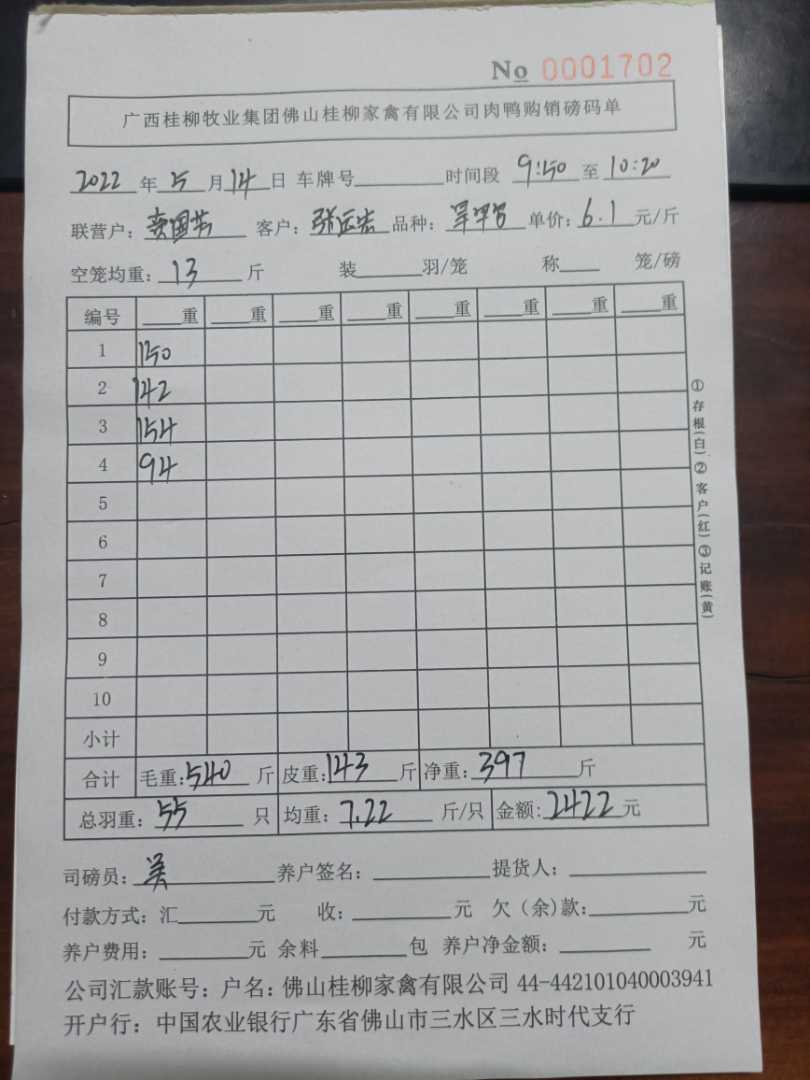 No 0001702
广西桂柳牧业集团佛山桂柳家禽有限公司肉鸭购销磅码单
2022 年 5 月 14 日 车牌号 时间段 9:50 至 10:20
联营户： 客户：张运宏 品种： 单价：6.1 元/斤
空笼均重：13 斤 装 羽/笼 称 笼/磅
编号 重 重 重 重 重 重 重 重
1 150
2 142
3 154
4 94
5
6
7
8
9
10
小计
合计 毛重：540 斤 皮重：143 斤 净重：397 斤
总羽重：55 只 均重：7.22 斤/只 金额：2422 元
司磅员： 养户签名： 提货人：
付款方式：汇 元 收： 元 欠（余）款： 元
养户费用： 元 余料 包 养户净金额： 元
公司汇款账号：户名：佛山桂柳家禽有限公司 44-442101040003941
开户行：中国农业银行广东省佛山市三水区三水时代支行
①存根（白）②客户（红）③记账（黄）